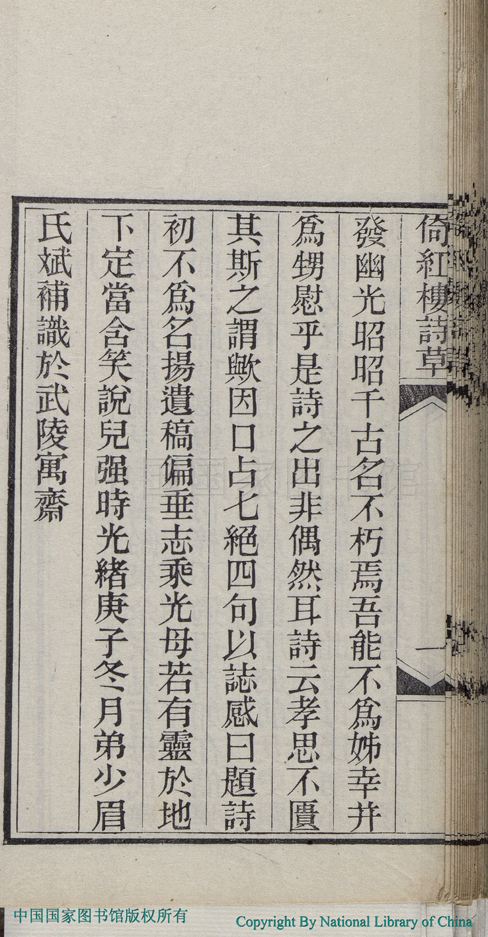 倚紅樓詩草
一
發幽光昭昭千古名不朽焉吾能不爲姊幸并
爲甥慰乎是詩之出非偶然耳詩云孝思不匱
其斯之謂歟因口占七絕四句以誌感曰題詩
初不爲名揚遺稿偏垂志乘光母若有靈於地
下定當含笑說兒强時光緒庚子冬月弟少眉
氏斌補識於武陵寓齋
中国国家图书馆版权所有
Copyright By National Library of China